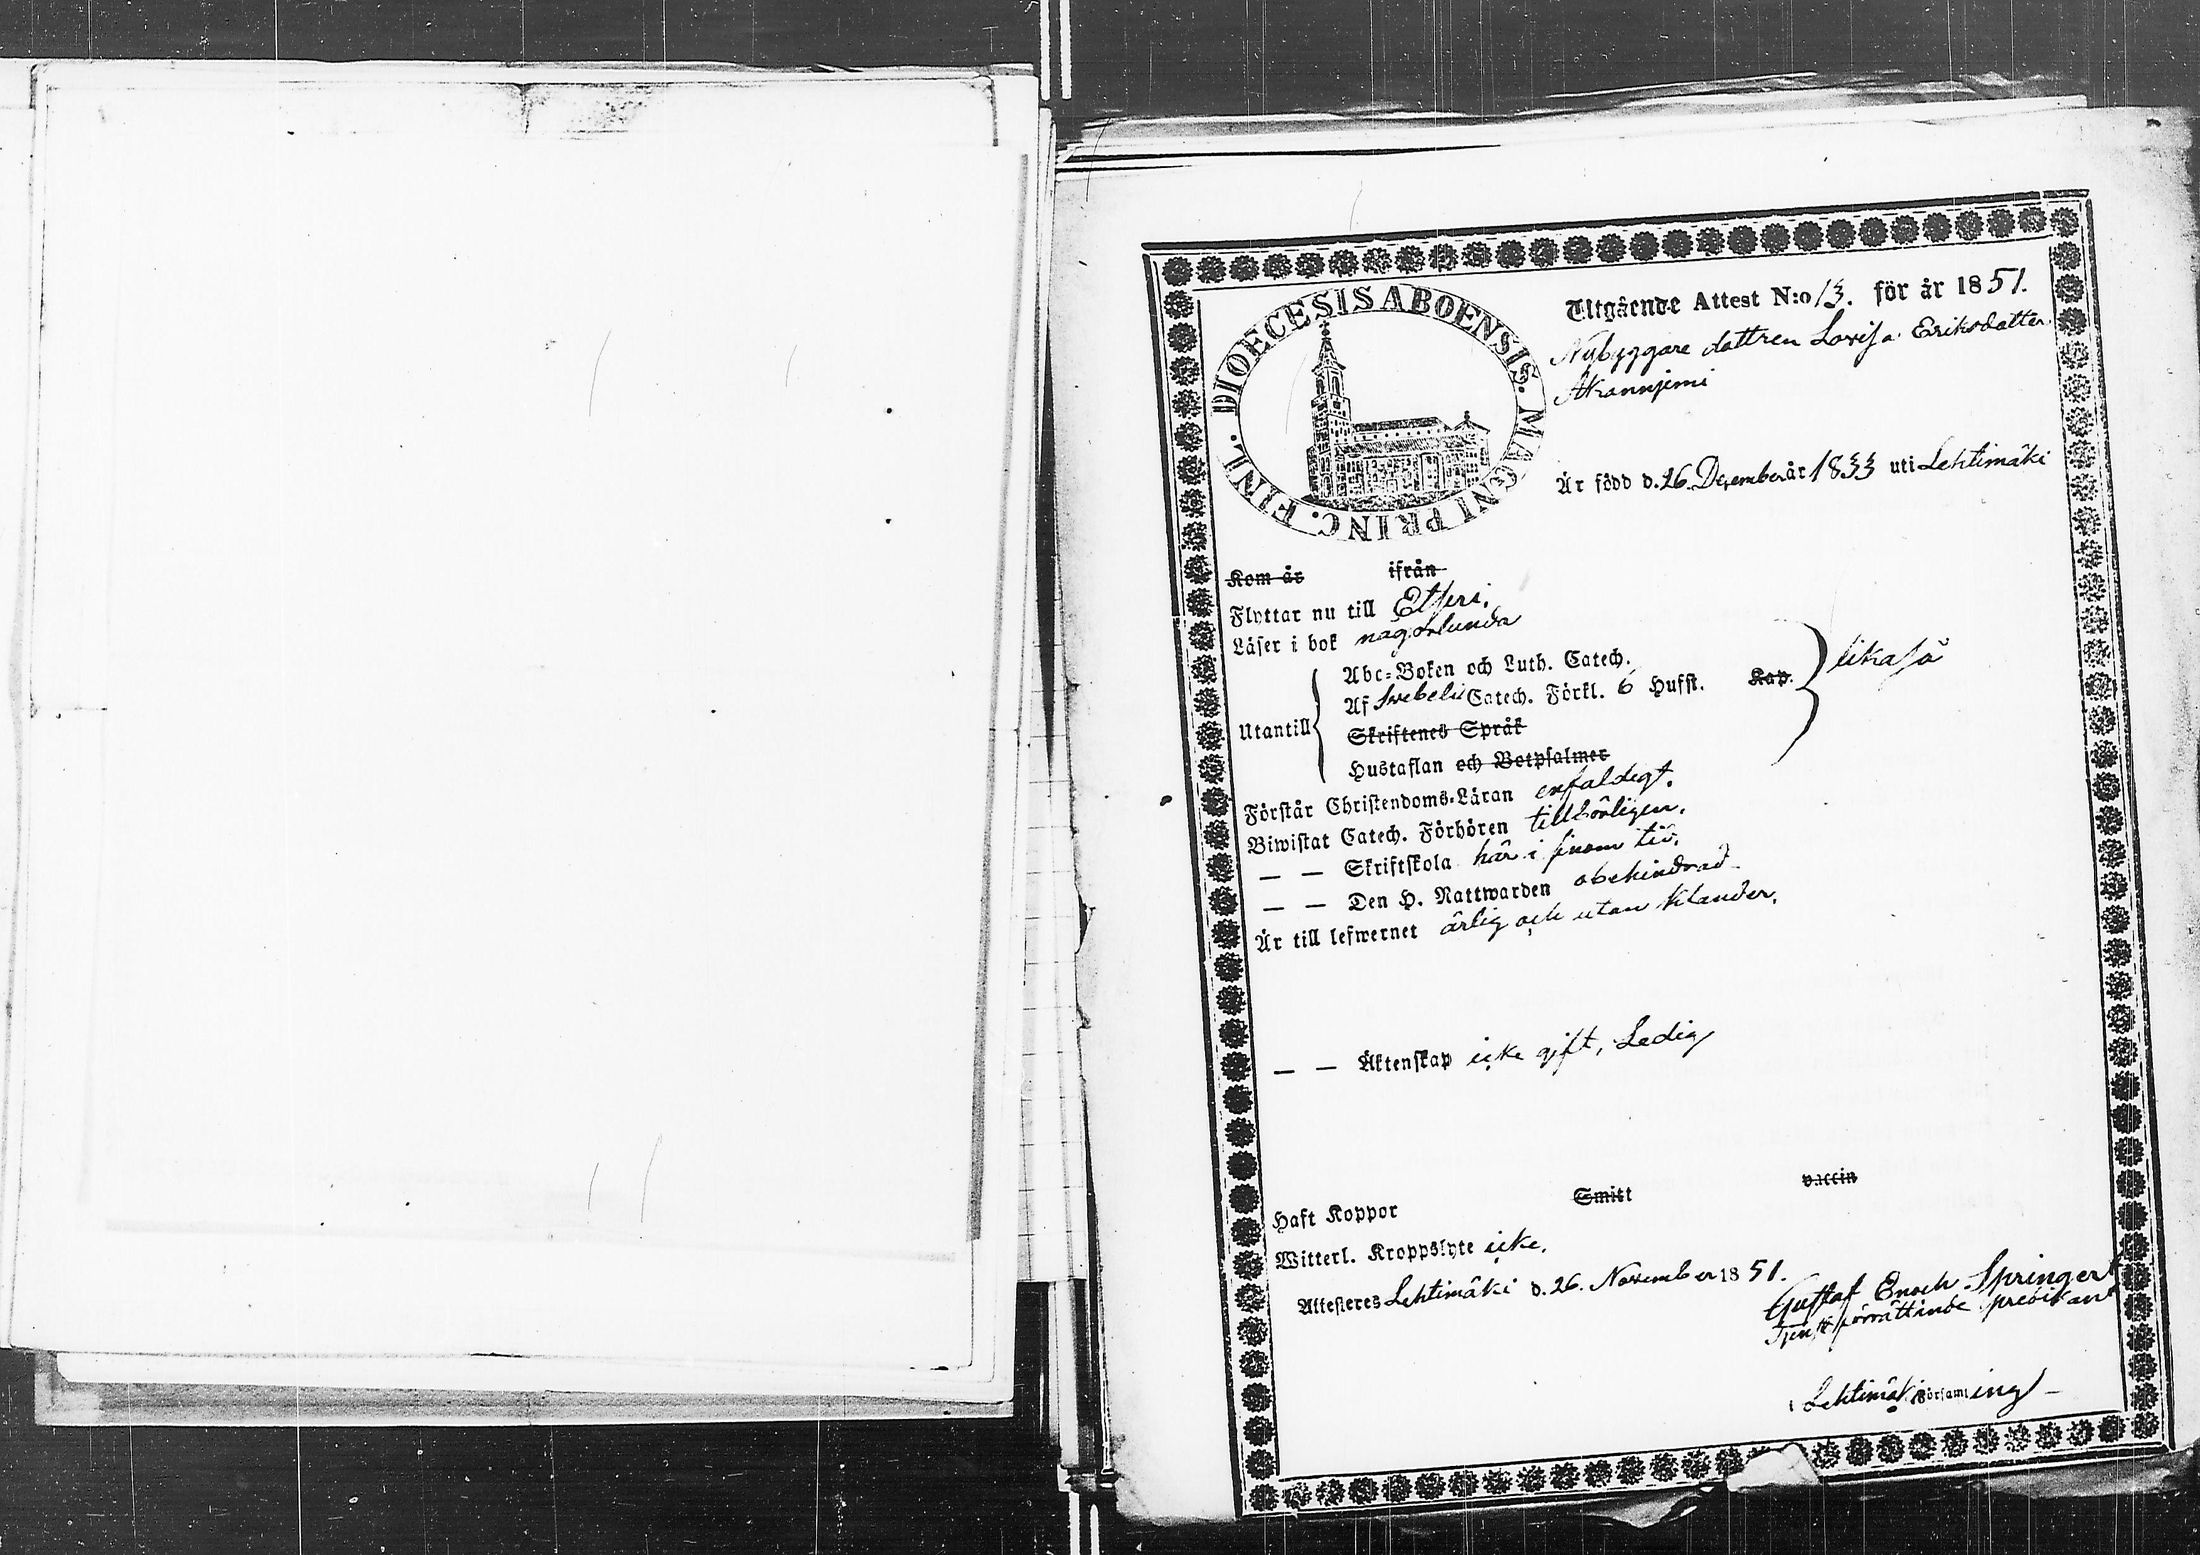 DIOECESIS ABOENSIS. MAGNI PRINC. FINL.
Utgående Attest N:o 13. för år 1851.
Nybyggare dottren Lovisa Eriksdotter
Akonnjemi
Är född d. 26 December år 1833 uti Lehtimäki
Kom år ifrån
Flyttar nu till Etseri.
Läser i bok någorlunda
Abc-Boken och Luth. Catech.
Af Svebelii Catech. Förkl. 6 Hufst. Kap. likaså
Utantill
Skriftenes Språk
Hustaflan och Botpsalmer
Förstår Christendoms-Läran enfaldigt.
Biwistat Catech. Förhören tillbörligen.
— — Skriftskola här i sinom tid.
— — Den H. Nattwarden obehindrad
Är till lefwernet ärlig och utan klander.
— — Äktenskap icke gift, Ledig
Haft Koppor Smitt vaccin
Witterl. Kroppslyte icke.
Attesteres Lehtimäki d. 26. November 1851.
Gustaf Enoch Springert
Tjenstförrättande predikant
i Lehtimäki Församling